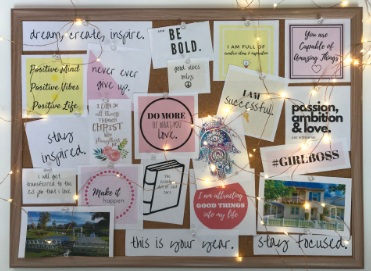 dream, create, inspire.
BE
BOLD.
good vibes
only.
I AM FULL OF
You are
Capable of
Amazing Things
Positive Mind
Positive Vibes
Positive Life.
never ever
give up.
I AM
successful.
I CAN DO
all things
THROUGH
CHRIST
DO MORE
OF WHAT YOU
LOVE.
passion,
ambition
& love.
stay
inspired.
#GIRLBOSS
I will get
transferred to the
Make it
happen
I am attracting
GOOD THINGS
into my life
this is your year.
stay focused.